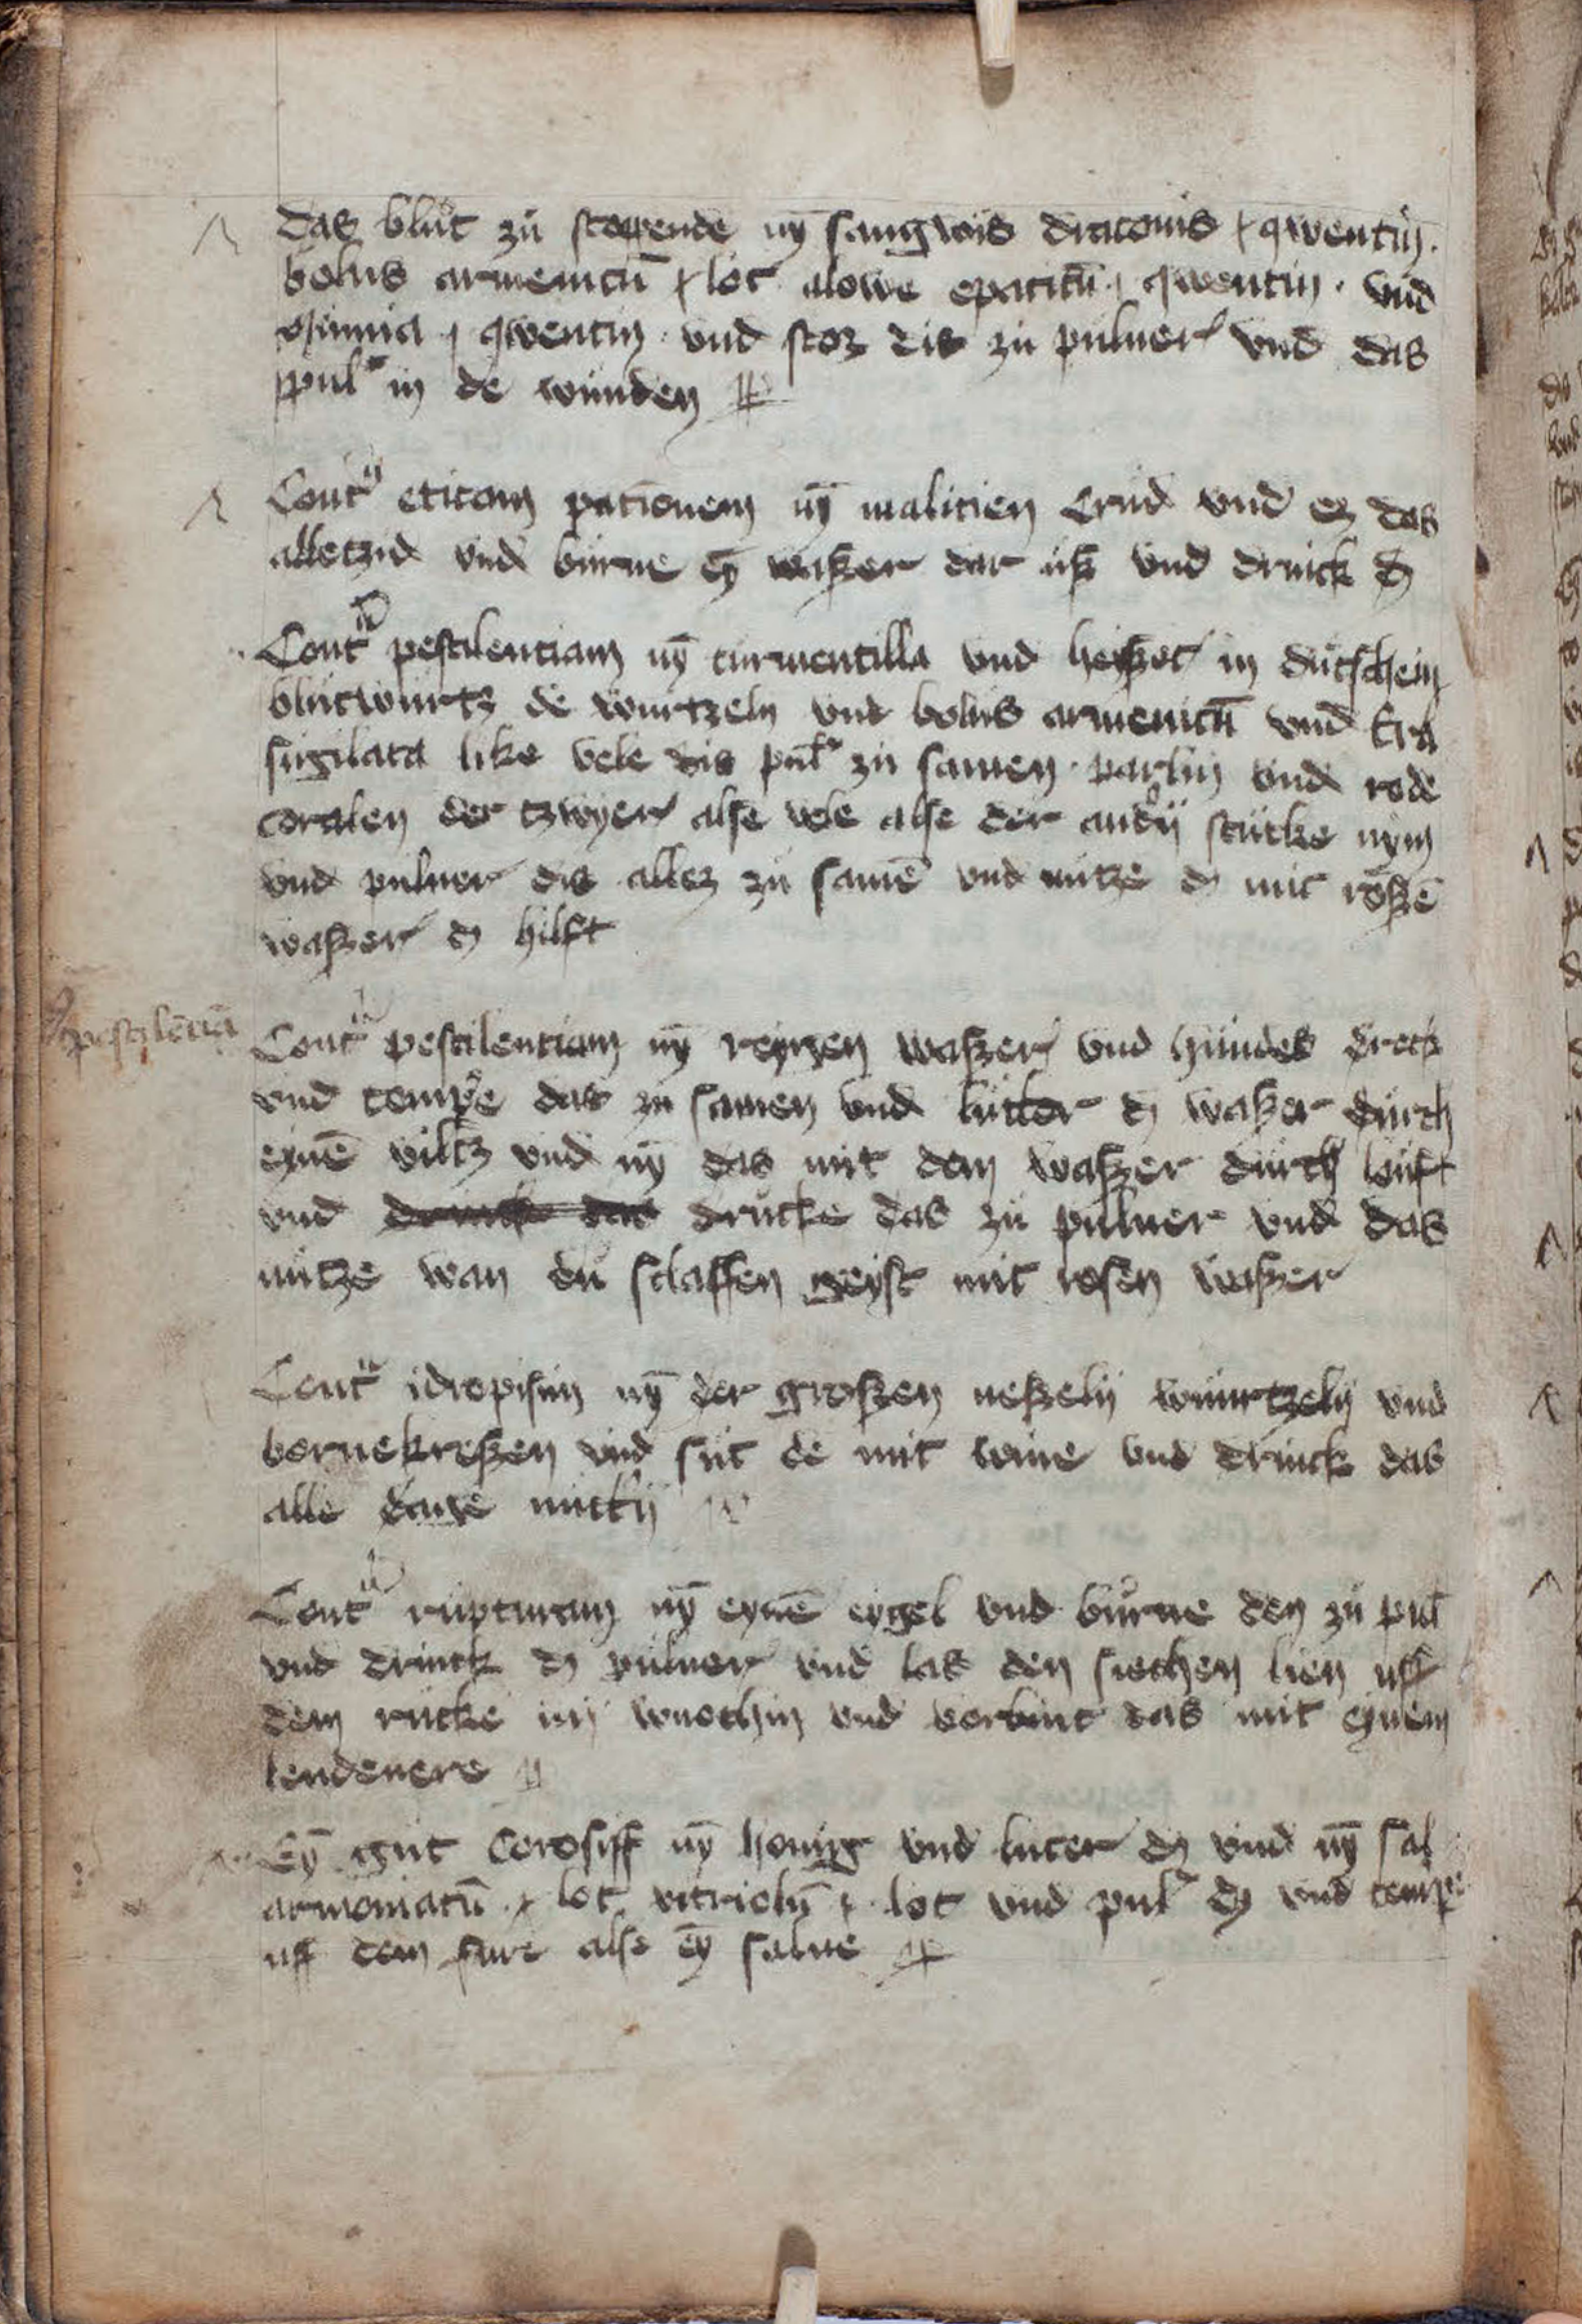 Das blut zu stoppende nȳ sangwis draconis ɟ qwentin.
bolus armenicū ɟ lot alowe epaticū ɟ qwentin. vnd
ɟ qwentin. vnd stoz dis zu puluer vnd das
pulˀ in de wunden
Contͣ eticam pationem nȳ malicien crud vnd ez das
alletzid vnd burne eȳ waszer dar usz vnd drinck dz
Contͣ pestilentiam nȳ turmentilla vnd heiszet in dutschem
blutwurtz de wurtzeln vnd bolus armenicū vnd tˀra
sigilata like vele dis pulˀ zu samen. parlin vnd rode
coralen der tzwyer alse vele alse der andˀn stucke nym
vnd puluer dis allez zu samē vnd nutze dz mit roszē
waszer dz hilft
pestilēciā
Contͣ pestilentiam nȳ reynen waszer vnd hundes dreck
vnd tempˀe das zu samen vnd lutter dz waszer durch
eynē viltz vnd nȳ das mit dem waszer durch louft
vnd drucke das zu puluer vnd das
nutze wan du sclaffen geyst mit rosen waszer
Contͣ idropisim nȳ der groszen neszeln wuurtzeln vnd
bornekreszen vnd sut de mit wine vnd drinck das
alle dage nuchtˀn
Contͣ rupturam nȳ eynē eygel vnd burne den zu pulˀ
vnd drinck dz puluer vnd las den siechen lien uff
dem rucke iiij wuochin vnd verbint das mit eynem
lendenere
Eȳ gut corosiff nȳ honig vnd luter dz vnd nȳ sal
armoniacū ɟ lot vitriolū ɟ lot vnd pulˀ dz vnd tempˀe
uff dem fure alse eȳ salue